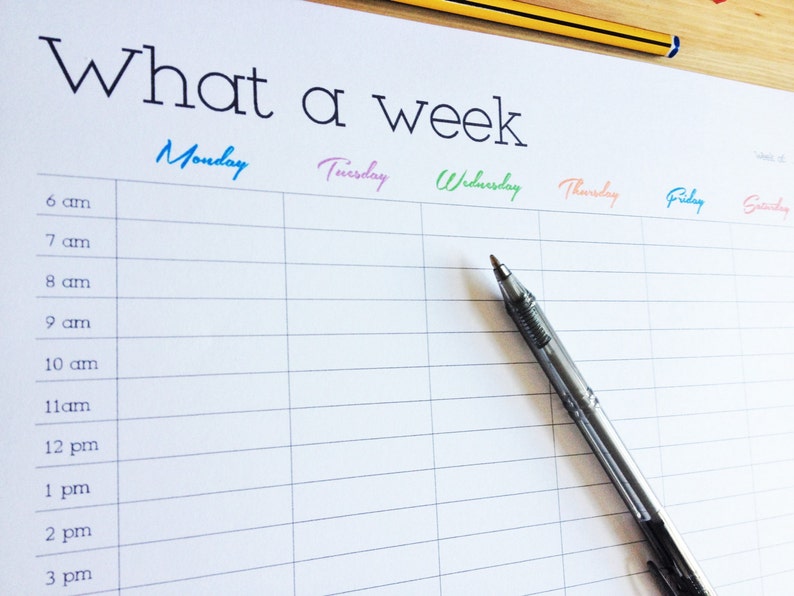 What a week
week of:
Monday Tuesday Wednesday Thursday Friday Saturday
6 am
7 am
8 am
9 am
10 am
11am
12 pm
1 pm
2 pm
3 pm